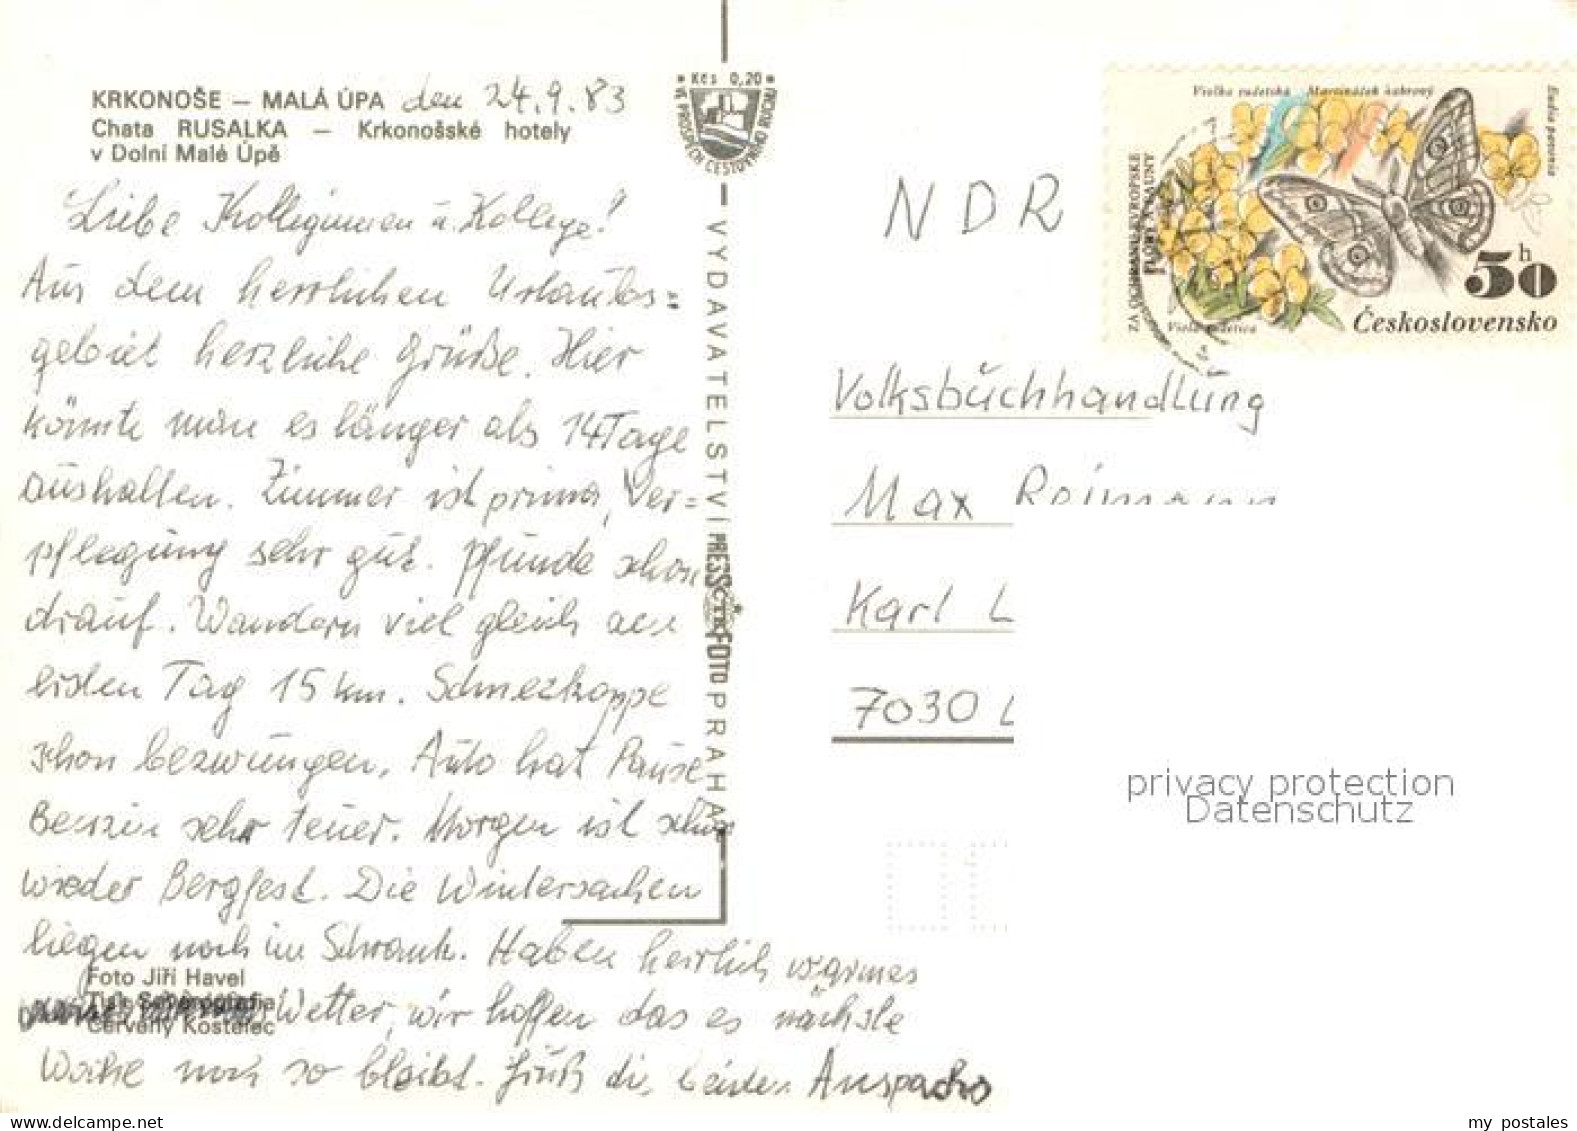 KRKONOŠE – MALÁ ÚPA den 24.9.83
Chata RUSALKA – Krkonošské hotely
v Dolní Malé Úpě
Liebe Kolleginnen u. Kollege!
Aus dem herrlichen Urlaubs=
gebiet herzliche Grüße. Hier
könnte man es länger als 14 Tage
aushalten. Zimmer ist prima, Ver=
pflegung sehr gut. Pfunde schon
drauf. Wandern viel gleich am
ersten Tag 15 km. Schneekoppe
schon bezwungen. Auto hat Pause,
Benzin sehr teuer. Morgen ist schon
wieder Bergfest. Die Wintersachen
liegen noch im Schrank. Haben herrlich warmes
Wetter, wir hoffen das es nächste
Woche noch so bleibt. Gruß die beiden Anspachs
Foto Jiří Havel
Tisk Severografia
Červený Kostelec
Kčs 0,20
VE PROSPĚCH CESTOVNÍHO RUCHU
VYDAVATELSTVÍ PRESSFOTO PRAHA
ČTK
Violka sudetská Martináček habrový
Eudia pavonia
ZA OCHRANU EVROPSKÉ
FLÓRY A FAUNY
Viola sudetica
50 h
Československo
NDR
Volksbuchhandlung
Max Reimann
Karl L
7030 L
privacy protection
Datenschutz
my postales